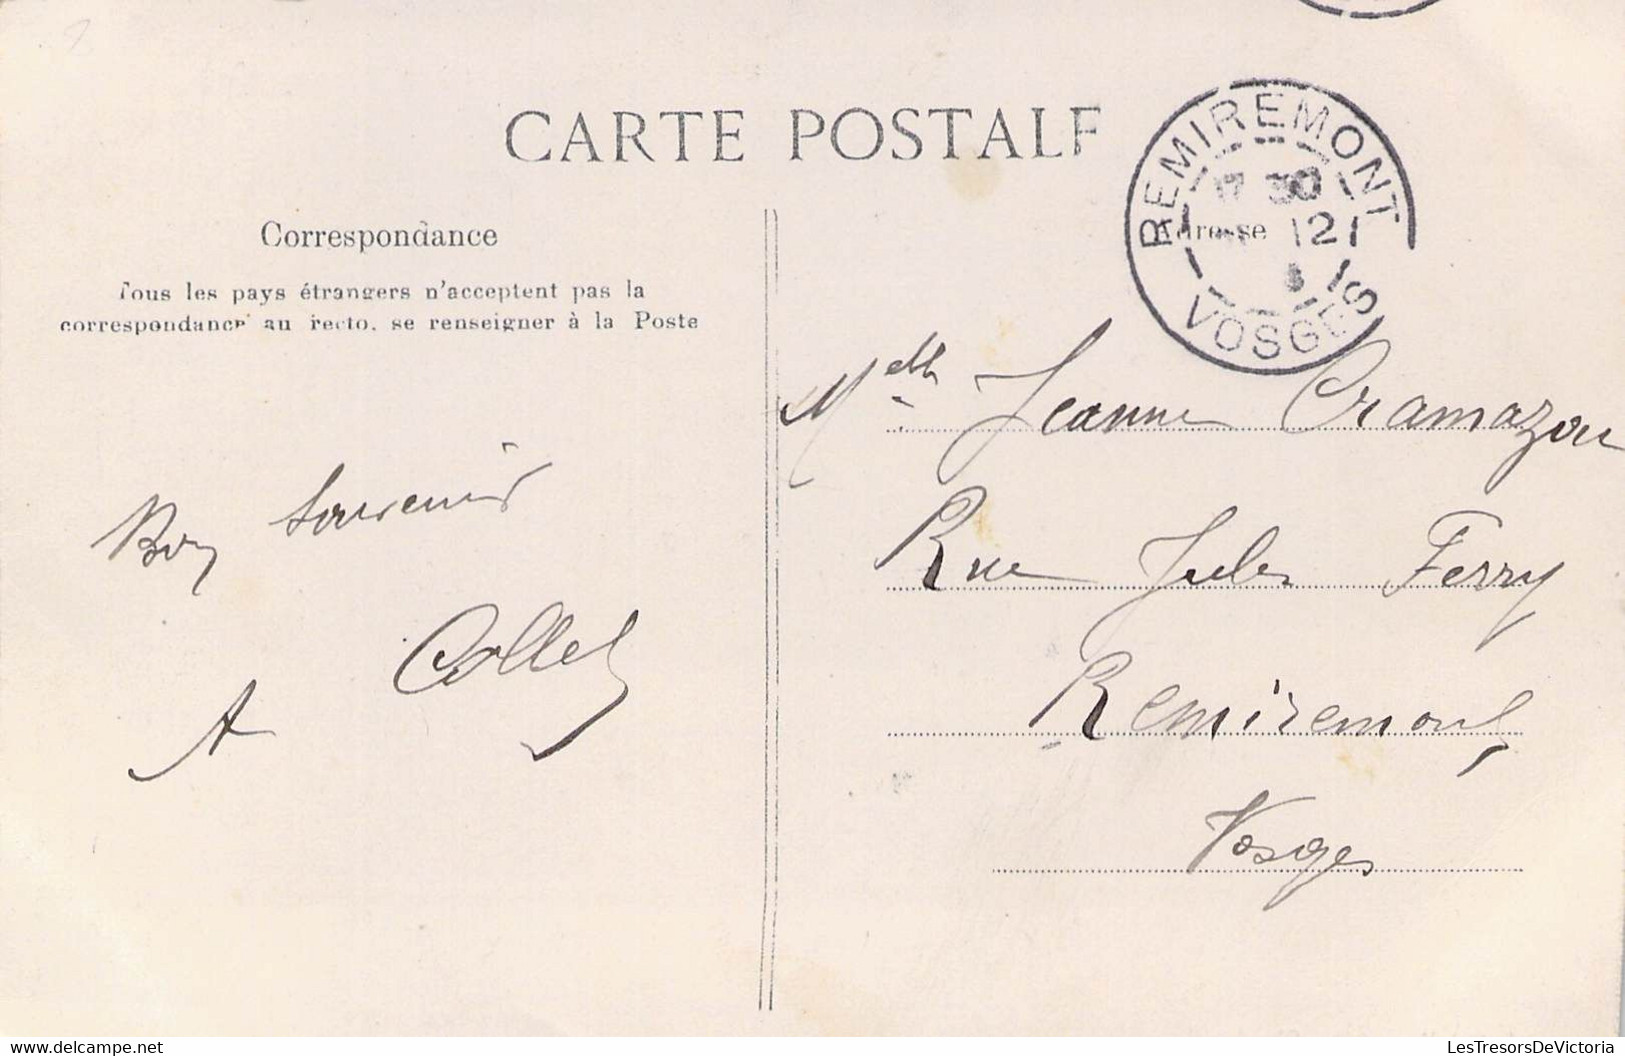 CARTE POSTALE
Correspondance
Tous les pays étrangers n'acceptent pas la
correspondance au recto, se renseigner à la Poste
Bon souvenir
A Collet
REMIREMONT
17 30
12
VOSGES
Adresse
Melle Jeanne Cramazou
Rue Jules Ferry
Remiremont
Vosges
www.delcampe.net
LesTresorsDeVictoria